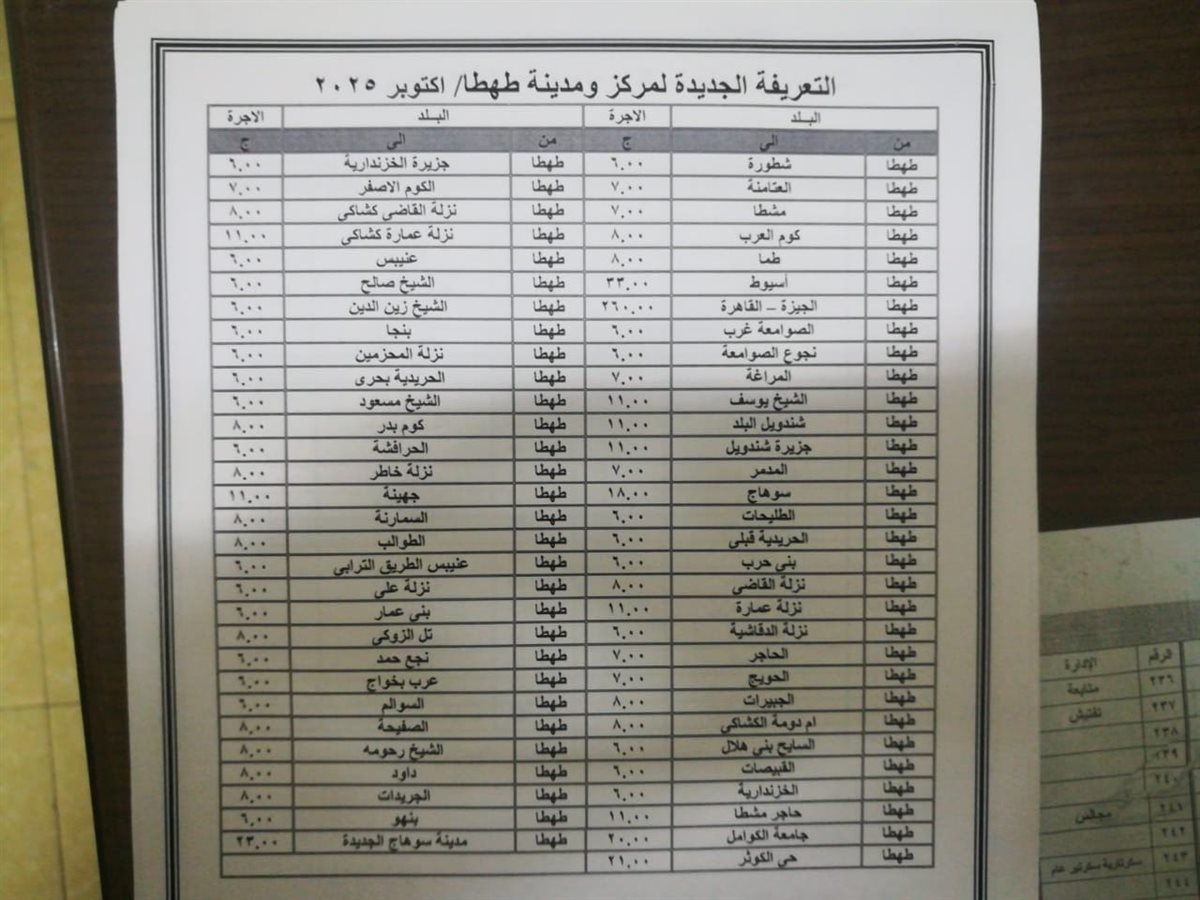 التعريفة الجديدة لمركز ومدينة طهطا/ اكتوبر ٢٠٢٥
البـــلد الاجرة البـــلد الاجرة
من الى ج من الى ج
طهطا شطورة ٦.٠٠ طهطا جزيرة الخزندارية ٦.٠٠
طهطا العتامنة ٧.٠٠ طهطا الكوم الاصفر ٧.٠٠
طهطا مشطا ٧.٠٠ طهطا نزلة القاضى كشاكى ٨.٠٠
طهطا كوم العرب ٨.٠٠ طهطا نزلة عمارة كشاكى ١١.٠٠
طهطا طما ٨.٠٠ طهطا عنيبس ٦.٠٠
طهطا أسيوط ٣٣.٠٠ طهطا الشيخ صالح ٦.٠٠
طهطا الجيزة – القاهرة ٢٦٠.٠٠ طهطا الشيخ زين الدين ٦.٠٠
طهطا الصوامعة غرب ٦.٠٠ طهطا بنجا ٦.٠٠
طهطا نجوع الصوامعة ٦.٠٠ طهطا نزلة المحزمين ٦.٠٠
طهطا المراغة ٧.٠٠ طهطا الحريدية بحرى ٦.٠٠
طهطا الشيخ يوسف ١١.٠٠ طهطا الشيخ مسعود ٦.٠٠
طهطا شندويل البلد ١١.٠٠ طهطا كوم بدر ٨.٠٠
طهطا جزيرة شندويل ١١.٠٠ طهطا الحرافشة ٦.٠٠
طهطا المدمر ٧.٠٠ طهطا نزلة خاطر ٨.٠٠
طهطا سوهاج ١٨.٠٠ طهطا جهينة ١١.٠٠
طهطا الطليحات ٦.٠٠ طهطا السمارنة ٨.٠٠
طهطا الحريدية قبلى ٦.٠٠ طهطا الطوالب ٨.٠٠
طهطا بنى حرب ٦.٠٠ طهطا عنيبس الطريق الترابي ٦.٠٠
طهطا نزلة القاضى ٨.٠٠ طهطا نزلة على ٦.٠٠
طهطا نزلة عمارة ١١.٠٠ طهطا بنى عمار ٦.٠٠
طهطا نزلة الدقاشية ٦.٠٠ طهطا تل الزوكى ٨.٠٠
طهطا الحاجر ٧.٠٠ طهطا نجع حمد ٦.٠٠
طهطا الحويج ٧.٠٠ طهطا عرب بخواج ٦.٠٠
طهطا الجبيرات ٨.٠٠ طهطا السوالم ٦.٠٠
طهطا ام دومة الكشاكى ٨.٠٠ طهطا الصفيحة ٨.٠٠
طهطا السايح بنى هلال ٦.٠٠ طهطا الشيخ رحومه ٨.٠٠
طهطا القبيصات ٦.٠٠ طهطا داود ٨.٠٠
طهطا الخزندارية ٦.٠٠ طهطا الجريدات ٨.٠٠
طهطا حاجر مشطا ١١.٠٠ طهطا بنهو ٦.٠٠
طهطا جامعة الكوامل ٢٠.٠٠ طهطا مدينة سوهاج الجديدة ٢٣.٠٠
طهطا حي الكوثر ٢١.٠٠
الرقم الإدارة
٢٣٦ متابعة
٢٣٧ تفتيش
٢٣٨
٢٣٩
٢٤٠
٢٤١ مجالس
٢٤٢
٢٤٣ سكرتارية سكرتير عام
٢٤٤